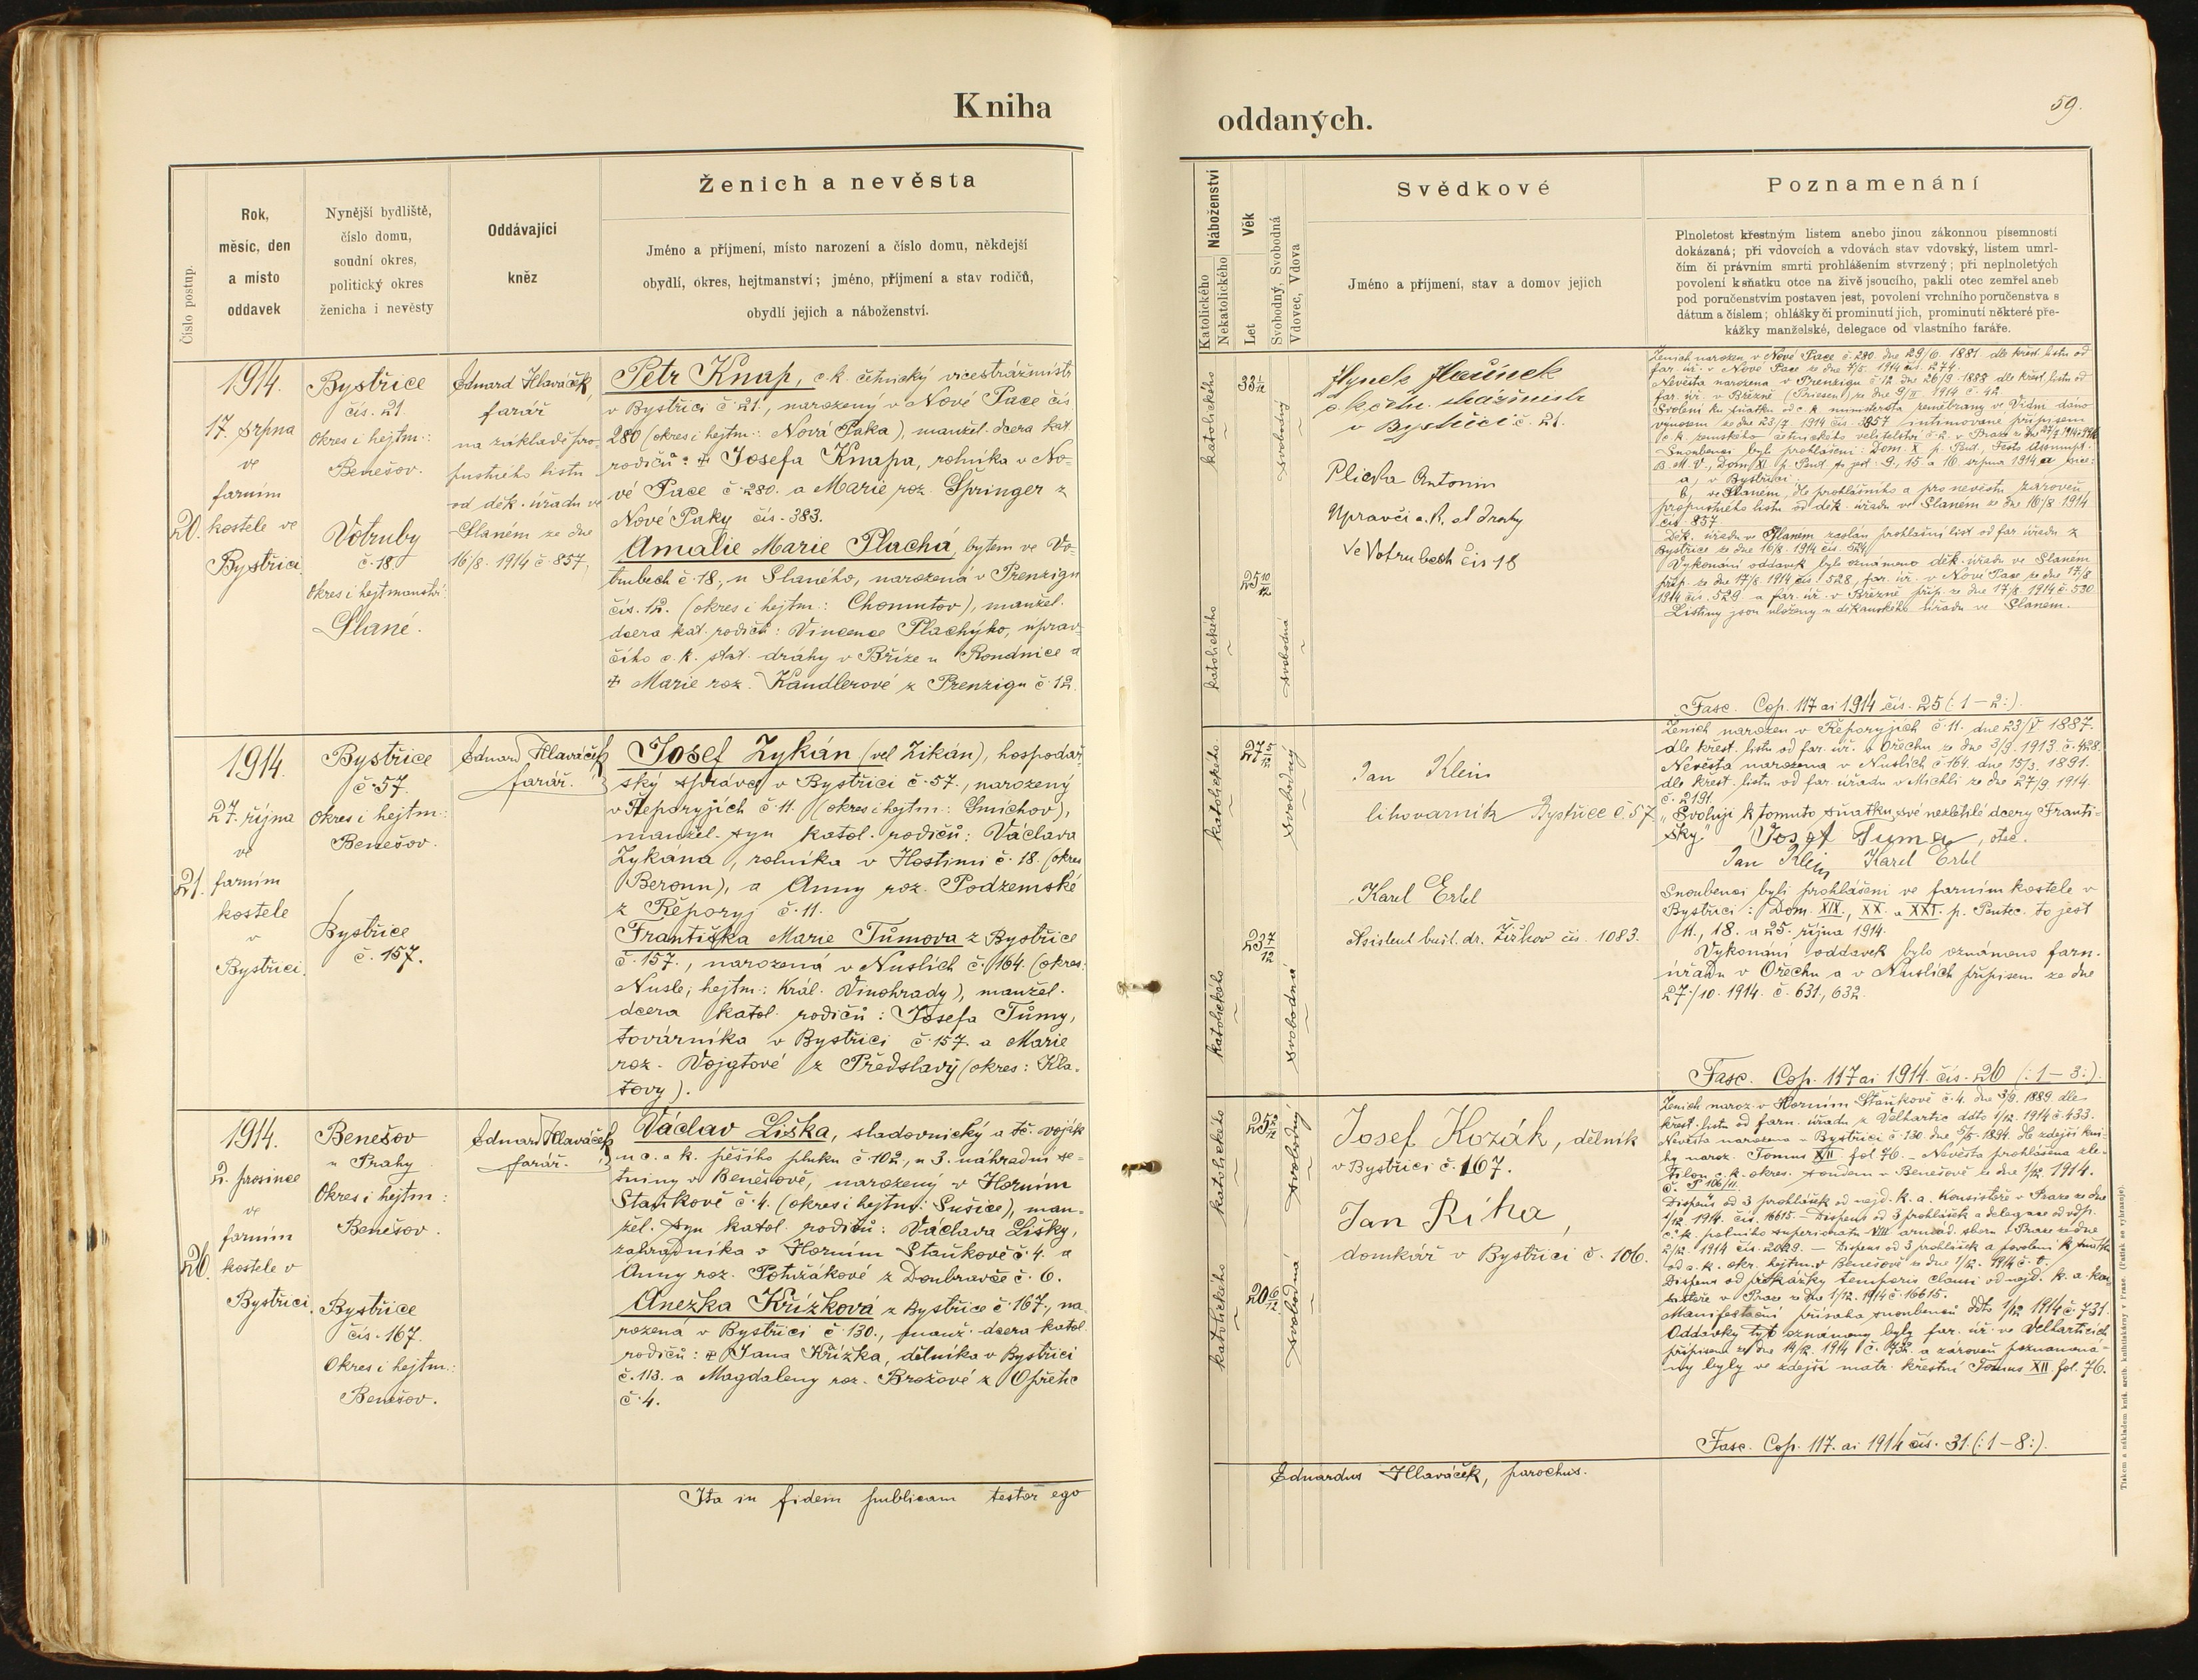 Kniha
Číslo postup.
Rok,
měsíc, den
a místo
oddavek
Nynější bydliště,
číslo domu,
soudní okres,
politický okres
ženicha i nevěsty
Oddávající
kněz
Ženich a nevěsta
Jméno a příjmení, místo narození a číslo domu, někdejší
obydlí, okres, hejtmanství; jméno, příjmení a stav rodičů,
obydlí jejich a náboženství.
20.
1914.
17. srpna
ve
farním
kostele ve
Bystřici.
Bystřice
čís. 21.
Okres i hejtm.:
Benešov.
Votruby
č. 18
Okres i hejtmanství:
Slané.
Eduard Hlaváček,
farář
na základě pro-
pustného listu
od děk. úřadu ve
Slaném ze dne
16/8. 1914 č. 857.
Petr Knap, c. k. četnický vicestrážmistr
v Bystřici č. 21., narozený v Nové Pace čís.
280 (okres i hejtm.: Nová Paka), manžel. dcera kat.
rodičů: † Josefa Knapa, rolníka v No-
vé Pace č. 280. a Marie roz. Springer z
Nové Paky čís. 383.
Amalie Marie Plachá, bytem ve Vo-
trubech č. 18., u Slaného, narozená v Prenzigu
čís. 12. (okres i hejtm.: Chomutov), manžel.
dcera kat. rodičů: Vincence Plachýho, úprav-
čího c. k. stát. dráhy v Bříze u Roudnice a
† Marie roz. Kandlerové z Prenzigu č. 12.
21.
1914.
27. října
ve
farním
kostele
v
Bystřici.
Bystřice
č. 57.
Okres i hejtm.:
Benešov.
Bystřice
č. 157.
Eduard Hlaváček
farář.
Josef Zykán (vel Zikán), hospodář-
ský správce v Bystřici č. 57., narozený
v Řeporyjích č. 11. (okres i hejtm.: Smíchov),
manžel. syn katol. rodičů: Václava
Zykána, rolníka v Hostimi č. 18. (okres
Beroun), a Anny roz. Podzemské
z Řeporyj č. 11.
Františka Marie Tůmova z Bystřice
č. 157., narozená v Nuslích č. 164. (okres:
Nusle; hejtm.: Král. Vinohrady), manžel.
dcera katol. rodičů: Josefa Tůmy,
továrníka v Bystřici č. 157. a Marie
roz. Vojgtové z Předslavy (okres: Kla-
tovy).
26.
1914.
2. prosince
ve
farním
kostele v
Bystřici.
Benešov
u Prahy
Okres i hejtm:
Benešov.
Bystřice
čís. 167.
Okres i hejtm.:
Benešov.
Eduard Hlaváček
farář.
Václav Liška, sladovnický a tč. voják
u c. a k. pěšího pluku č. 102, u 3. náhradní se-
tniny v Benešově, narozený v Horním
Staňkově č. 4. (okres i hejtm.: Sušice), man-
žel. syn katol. rodičů: Václava Lišky,
zahradníka v Horním Staňkově č. 4. a
Anny roz. Potužákové z Doubravče č. 6.
Anežka Křížková z Bystřice č. 167., na-
rozená v Bystřici č. 130., manž. dcera katol.
rodičů: † Jana Křížka, dělníka v Bystřici
č. 113. a Magdaleny roz. Brožové z Opřetic
č. 4.
Ita in fidem publicam testor ego
59.
oddaných.
Náboženství
Katolického
Nekatolického
Věk
Let
Svobodný, Svobodná
Vdovec, Vdova
Svědkové
Jméno a příjmení, stav a domov jejich
Poznamenání
Plnoletost křestným listem anebo jinou zákonnou písemností
dokázaná; při vdovcích a vdovách stav vdovský, listem umrl-
čím či právním smrti prohlášením stvrzený; při neplnoletých
povolení k sňatku otce na živě jsoucího, pakli otec zemřel aneb
pod poručenstvím postaven jest, povolení vrchního poručenstva s
dátum a číslem; ohlášky či prominutí jich, prominutí některé pře-
kážky manželské, delegace od vlastního faráře.
katolického
33 1/12
svobodný
katolického
25 10/12
svobodná
Hynek Hauínek
v Bystřici č. 21.
Plicka Antonin
Upravčí c. k. st drahy
Ve Votrubech čis 18
Ženich narozen v Nové Pace č. 280. dne 29/6. 1881. dle křest. listu od
far. úř. v Nové Pace ze dne 7/5. 1914 čís. 274.
Nevěsta narozena v Prenzigu č. 12. dne 26/9. 1888. dle křest. listu od
far. úř. v Březně (Priesen) ze dne 9/II. 1914 č. 42.
Svolení ku sňatku od c. k. ministerstva zeměbrany ve Vídni dáno
výnosem ze dne 23/7. 1914 čís. 3857 intimované přípisem
c. k. zemského četnického velitelství č. 2. v Praze ze dne 27/7 1914
Snoubenci byli prohlášeni: Dom. X. p. Pent., Festo Assumpt.
B. M. V., Dom. XI. p. Pent. to jest 9., 15. a 16. srpna 1914 a sice:
a, v Bystřici
b, ve Slaném, dle prohlášního a pro nevěstu zároveň
propustného listu od děk. úřadu ve Slaném ze dne 16/8. 1914
čís. 857.
Děk. úřadu ve Slaném zaslán prohlašní list od far. úřadu z
Bystřice ze dne 16/8. 1914 čís. 524.
Vykonání oddavek bylo oznámeno děk. úřadu ve Slaném
příp. ze dne 17/8. 1914 čís. 528., far. úř. v Nové Pace ze dne 17/8.
1914 čís. 529 a far. úř. v Březně příp. ze dne 17/8. 1914 č. 530.
Listiny jsou uloženy u děkanského úřadu ve Slaném.
Fasc. Cop. 117 ai 1914 čís. 25 (: 1 – 2 :).
katolického
27 5/12
svobodný
katolického
23 7/12
svobodná
Jan Klein
lihovarník Bystřice č. 57
Karel Ertl
Asistent bušt. dr. Žižkov čís. 1083.
Ženich narozen v Řeporyjích č. 11. dne 23/V 1887.
dle křest. listu od far. úř. v Ořechu ze dne 3/9. 1913. č. 428.
Nevěsta narozena v Nuslích č. 164. dne 15/3. 1891.
dle křest. listu od far. úřadu v Michli ze dne 27/9. 1914.
č. 2191.
„Svoluji k tomuto sňatku své nezletilé dcery Franti-
šky“ Josef Tuma, otec.
Jan Klein Karel Ertl
Snoubenci byli prohlášeni ve farním kostele v
Bystřici: Dom. XIX., XX. a XXI. p. Pentec. to jest
11., 18. a 25. října 1914.
Vykonání oddavek bylo oznámeno farn.
úřadu v Ořechu a v Nuslích přípisem ze dne
27./10. 1914. č. 631., 632.
Fasc. Cop. 117 ai 1914. čís. 26 (: 1 – 3 :).
katolického
25 2/12
svobodný
katolického
20 6/12
svobodná
Josef Kozák, dělník
v Bystřici č. 167.
Jan Říha,
domkář v Bystřici č. 106.
Ženich naroz. v Horním Staňkově č. 4. dne 3/9. 1889 dle
křest. listu od farn. úřadu z Velhartic ddto 1/12. 1914 č. 433.
Nevěsta narozena v Bystřici č. 130. dne 5/5. 1894. dle zdejší kni-
hy naroz. Tomus XII fol. 76. – Nevěsta prohlášena zle-
tilou c. k. okres. soudem v Benešově ze dne 1/12. 1914.
č. P 106/11
Dispens od 3 prohlášek od nejd. k. a. konsistoře v Praze ze dne
1/12. 1914. čís. 16615. – Dispens od 3 prohlášek a delegace od vdp.
c. k. polního superiorátu VIII. armád. sboru v Praze ze dne
2/12. 1914 čís. 2029. – Dispens od 3 prohlášek a povolení k sňatku
od c. k. okr. hejtm. v Benešově ze dne 1/12. 1914 č. t.
Dispens od překážky temporis clausi od nejd. k. a. kon-
sistoře v Praze ze dne 1/12. 1914 č. 16615.
Manifestační přísaha snoubenců ddto 1/12 1914 č. 731.
Oddavky tyto oznámeny byly far. úř. ve Velharticích
přípisem ze dne 14/12. 1914 č. a zároveň poznamená-
ny byly ve zdejší matr. křestní Tomus XII. fol. 76.
Fasc. Cop. 117. ai 1914 čís. 31. (: 1 – 8 :).
Eduardus Hlaváček, parochus.
Tiskem a nákladem kníž. arcib. knihtiskárny v Praze. (Patisk se vyhrazuje).